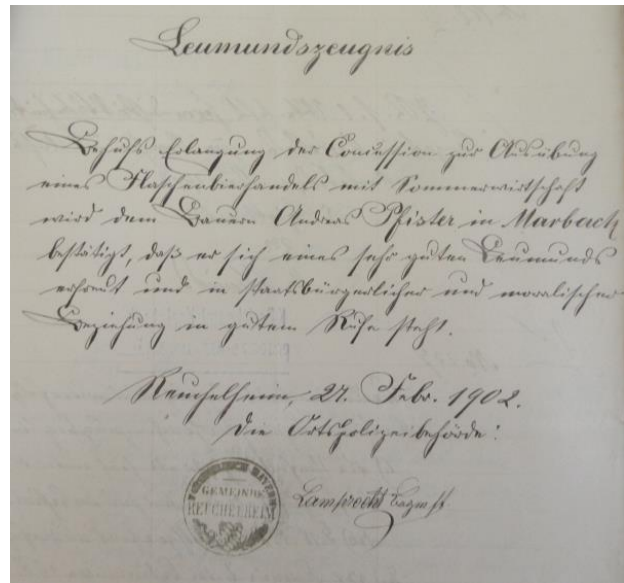 Leumundszeugnis
Behufs Erlangung der Concession zur Ausübung
eines Flaschenbierhandels mit Sommerwirtschaft
wird dem Bauern Andreas Pfister in Marbach
bestätigt, daß er sich eines sehr guten Leumunds
erfreut und in staatsbürgerlicher und moralischer
Beziehung in gutem Rufe steht.
Reuchelheim, 27. Febr. 1902.
Die Ortspolizeibehörde:
GEMEINDE
REUCHELHEIM
Lamprecht Bgmstr